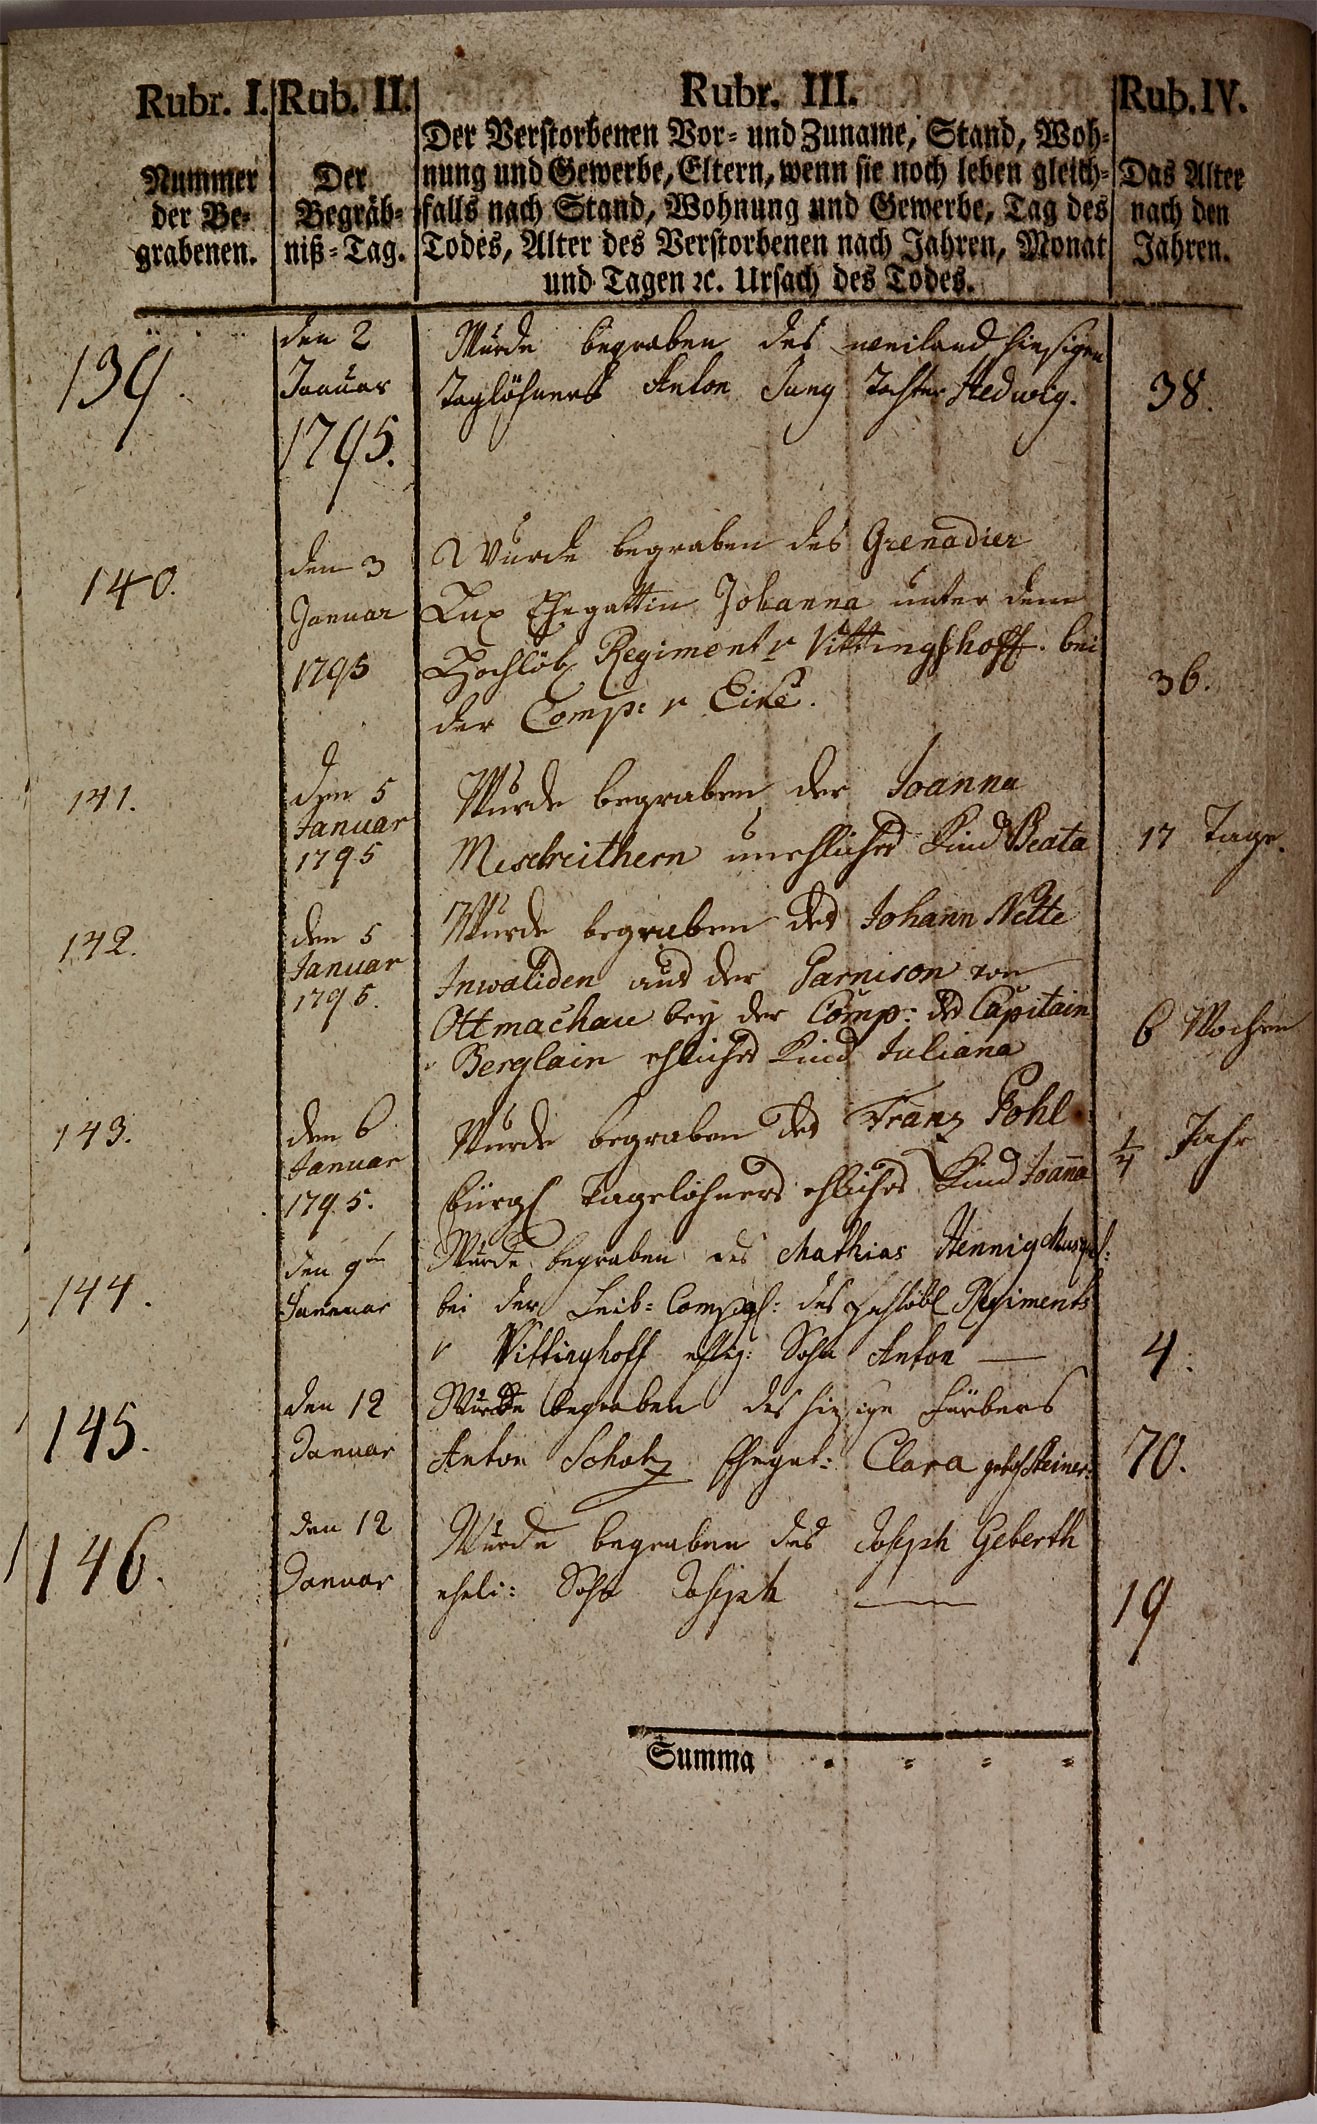 Rubr. I. Rub. II. Rubr. III. Rub. IV.
Nummer der Be= grabenen.
Der Begräb= niß=Tag.
Der Verstorbenen Vor= und Zuname, Stand, Woh=
nung und Gewerbe, Eltern, wenn sie noch leben gleich=
falls nach Stand, Wohnung und Gewerbe, Tag des
Todes, Alter des Verstorbenen nach Jahren, Monat
und Tagen ꝛc. Ursach des Todes.
Das Alter nach den Jahren.
139.
den 2
Januar
1795.
Wurde begraben des weiland hiesigen
Taglöhners Anton Jung Tochter Hedwig.
38.
140.
den 3
Januar
1795
Wurde begraben des Grenadier
Lux Ehegattin Johanna unter dem
Hochlöb. Regiment v Vittinghhoff. bei
der Comp: v
36.
141.
den 5
Januar
1795
Wurde begraben der Joanna
unehliches Kind Beata
17 Tage.
142.
den 5
Januar
1795.
Wurde begraben des Johann Nette
Invaliden aus der Garnison von
Ottmachau bey der Comp: des Capitain
v Berglain ehliches Kind Juliana
6 Wochen
143.
den 6
Januar
1795.
Wurde begraben des Franz Pohl
bürgl Tagelöhners ehliches Kind Joanna
1/4 Jahr
144.
den 9ten
Januar
Wurde begraben des Mathias Hennig
bei der Leib= Compgl: des Hochlöbl Regiments
v Vittinghoff ehlig: Sohn Anton —
4.
145.
den 12
Januar
Wurde begraben des hiesige Färbers
Anton Scholz Ehegat: Clara
70.
146.
den 12
Januar
Wurde begraben des Joseph Geberth
eheli: Sohn Joseph —
19
Summa